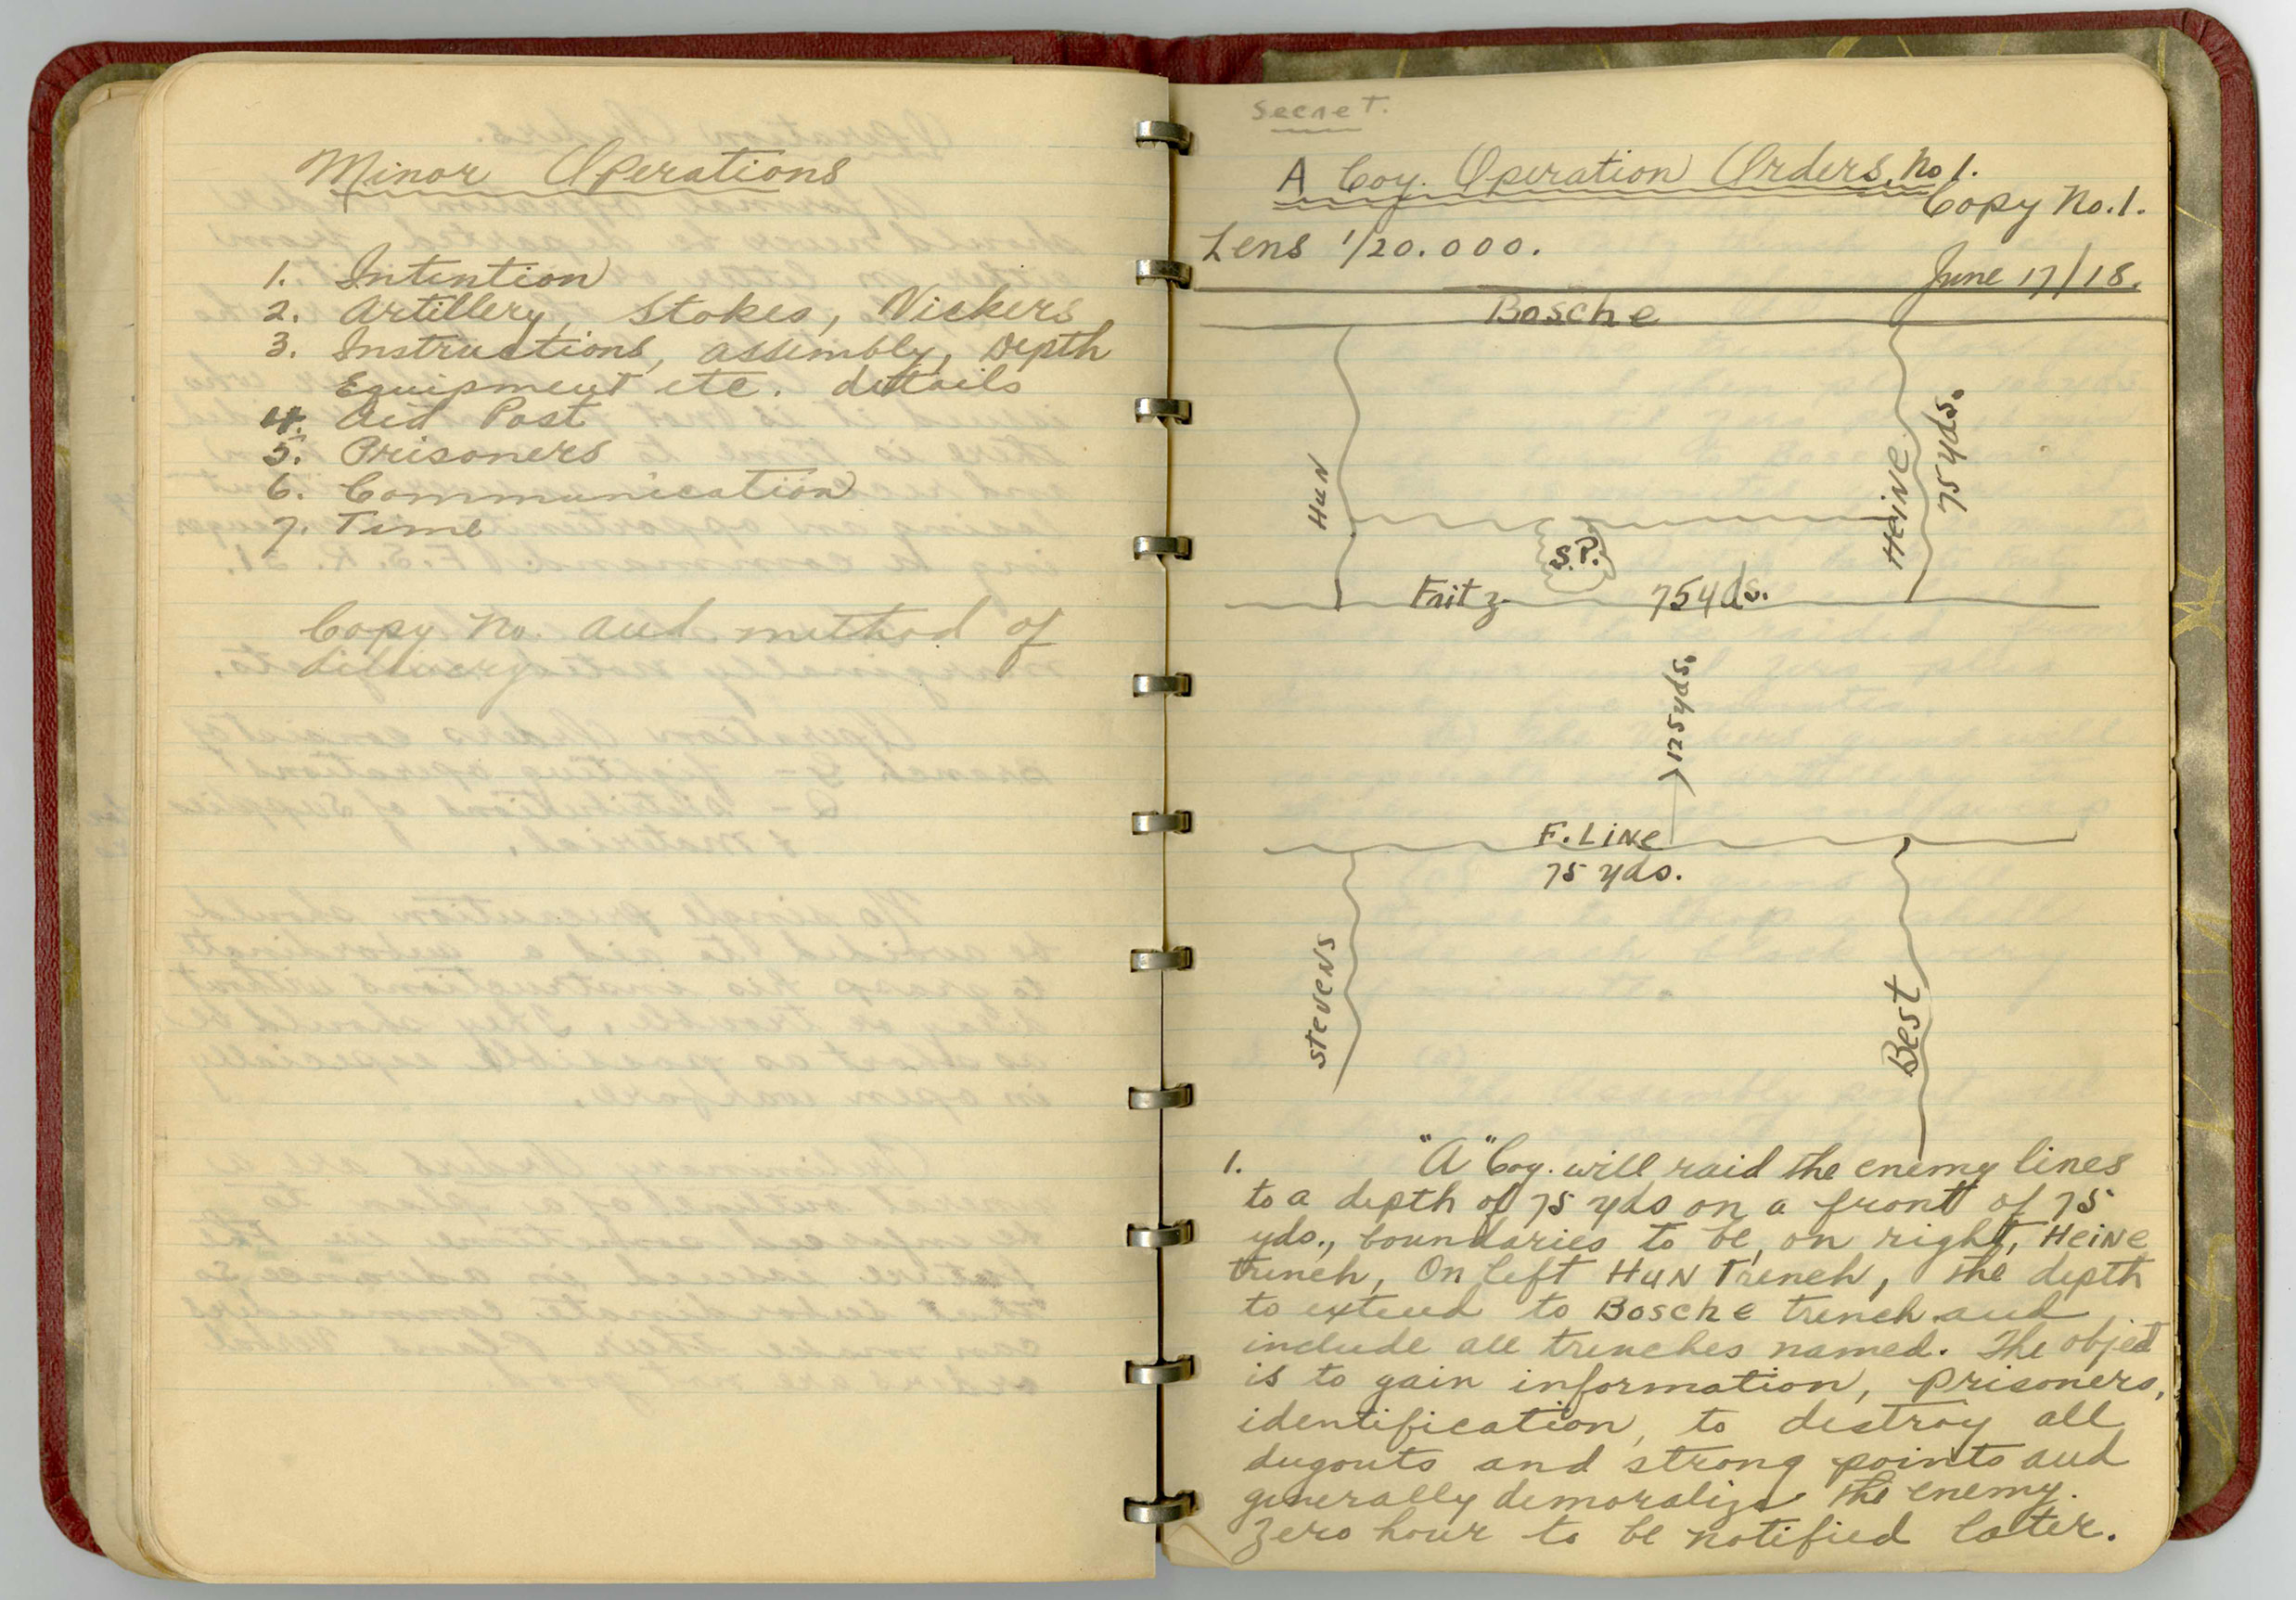 Minor Operations
1. Intention
2. Artillery, Stokes, Vickers
3. Instructions, assembly, Depth
Equipment etc. details
4. Aid Post
5. Prisoners
6. Communication
7. Time
Copy No. and method of
delivery
Secret.
A Coy. Operation Orders, No 1.
Copy No. 1.
Lens 1/20.000.
June 17/18.
Bosche
Hun
Heine
75 yds.
S.P.
Fritz
75 yds.
125 yds.
F. Line
75 yds.
Stevens
Best
1. "A" Coy. will raid the enemy lines
to a depth of 75 yds on a front of 75
yds., boundaries to be, on right, Heine
trench, On left Hun Trench, the depth
to extend to Bosche trench and
include all trenches named. The object
is to gain information, prisoners,
identification, to destroy all
dugouts and strong points and
generally demoralize the enemy.
Zero hour to be notified later.